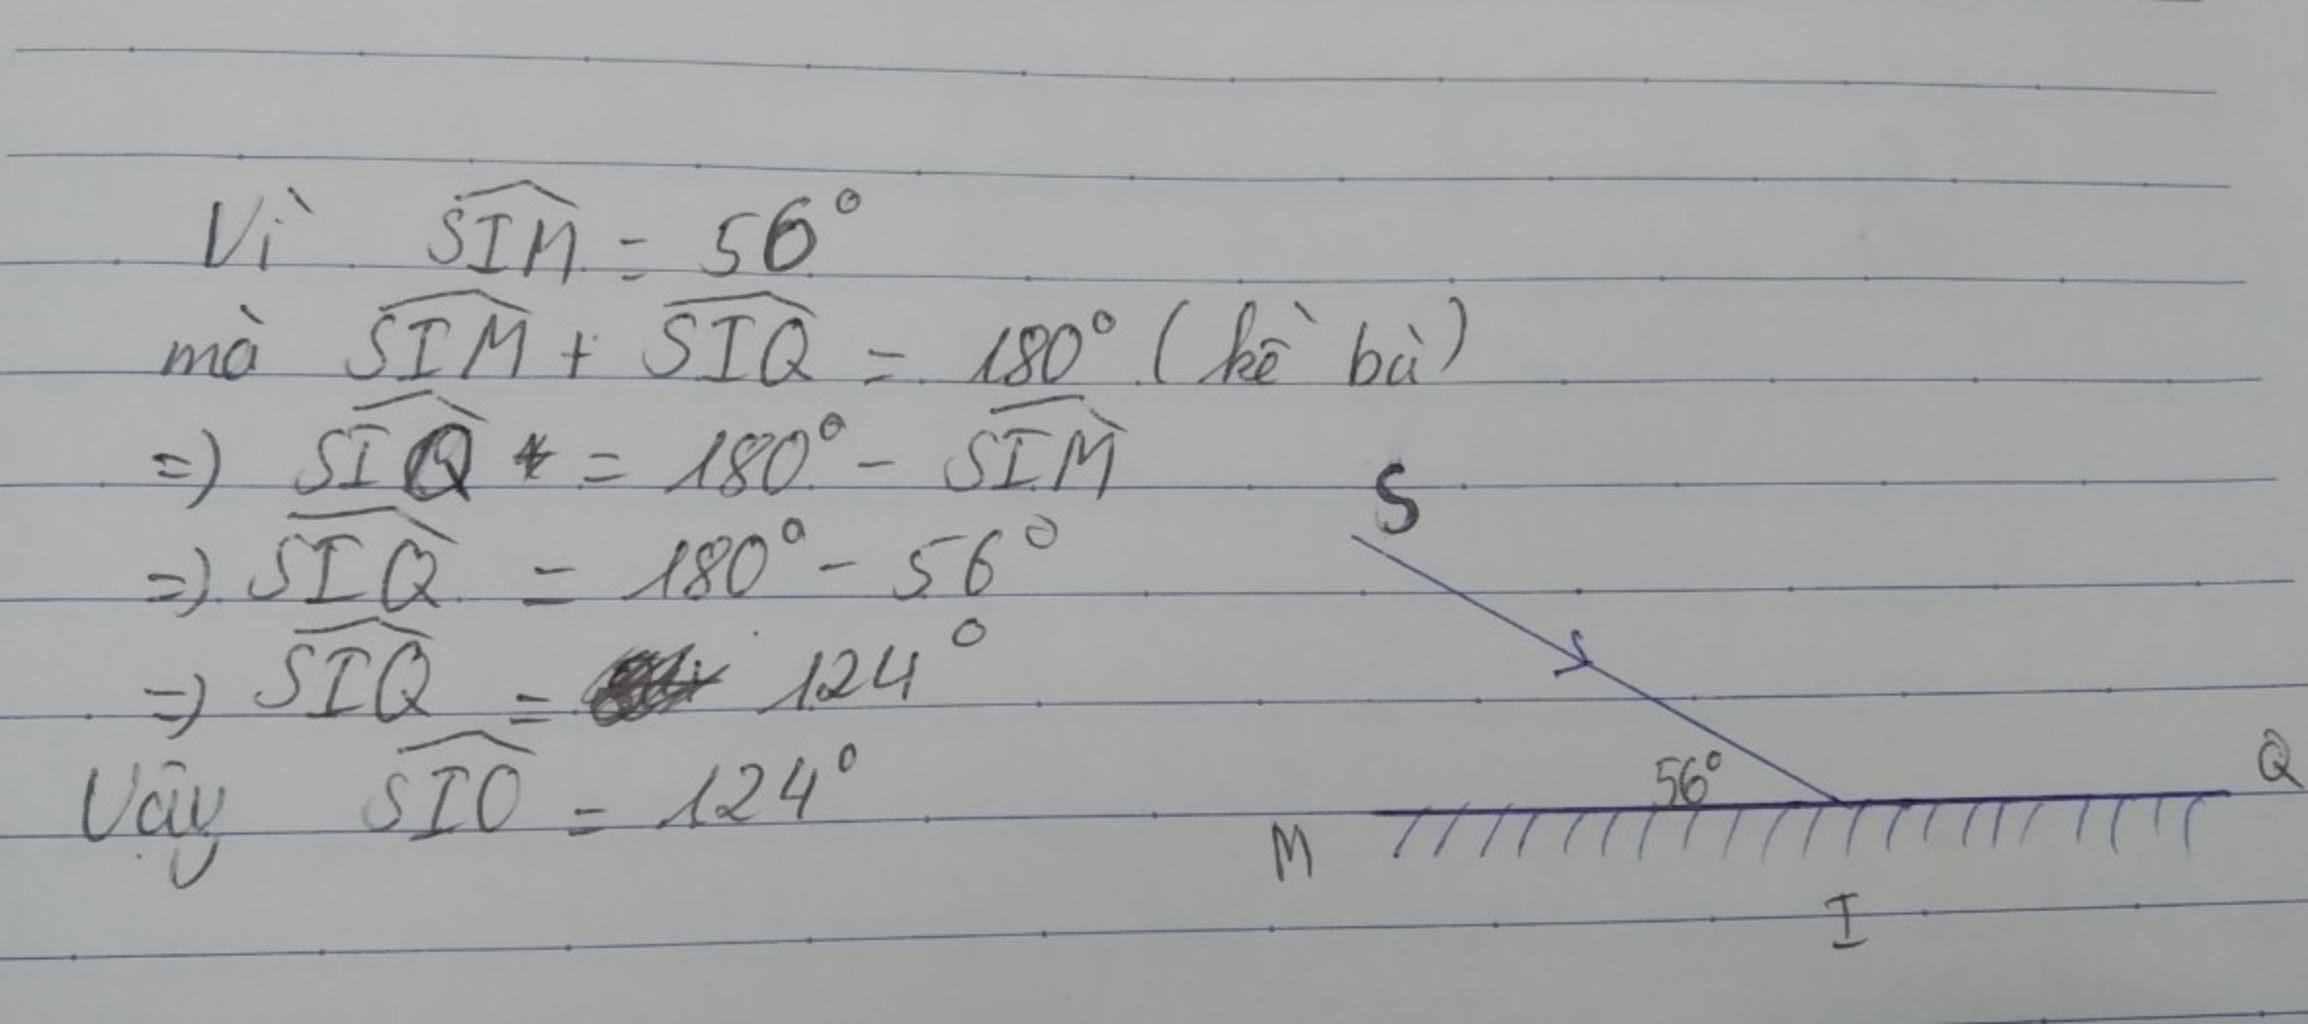 Vì $\widehat{SIM}$ = 56°
mà $\widehat{SIM}$ + $\widehat{SIQ}$ = 180° (kề bù)
=) $\widehat{SIQ}$ = 180° - $\widehat{SIM}$
=) $\widehat{SIQ}$ = 180° - 56°
=) $\widehat{SIQ}$ = 124°
Vậy $\widehat{SIO}$ = 124°
S
56°
Q
M
I